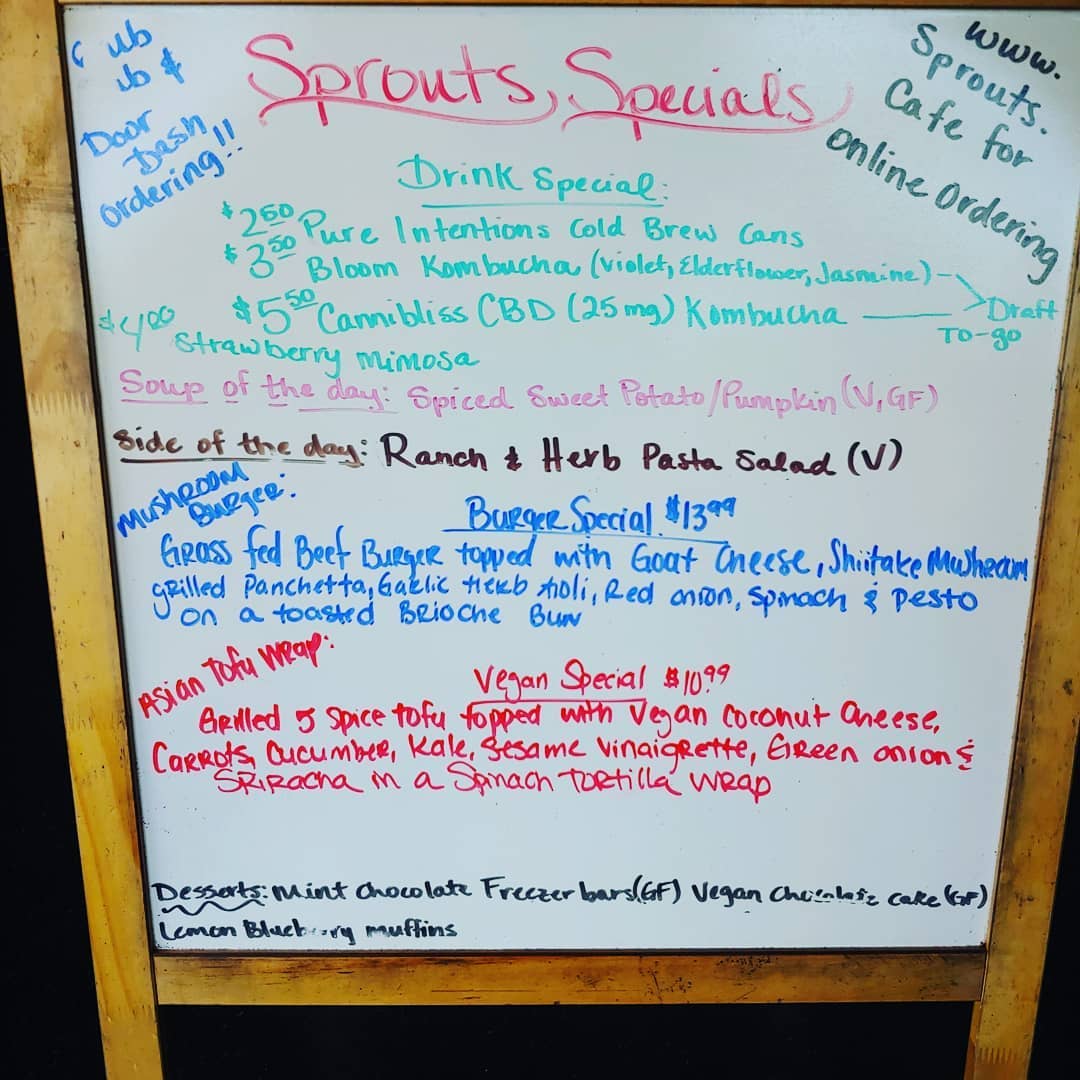 ub
ub &
Door
Dash
ordering!!
Sprouts Specials
www.
Sprouts.
Cafe for
online ordering
Drink Special:
$2.50 Pure Intentions Cold Brew Cans
$3.50 Bloom Kombucha (Violet, Elderflower, Jasmine)
$5.50 Cannibliss CBD (25 mg) Kombucha
Draft
To-go
$4.00 Strawberry Mimosa
Soup of the day: Spiced Sweet Potato/Pumpkin (V, GF)
Side of the day: Ranch & Herb Pasta Salad (V)
Mushroom
Burger:
Burger Special $13.99
Grass fed Beef Burger topped with Goat Cheese, Shiitake Mushroom
grilled Panchetta, Garlic Herb Aoli, Red onion, Spinach & Pesto
on a toasted Brioche Bun
Asian Tofu Wrap:
Vegan Special $10.99
Grilled 5 Spice tofu topped with Vegan Coconut Cheese,
Carrots, Cucumber, Kale, Sesame Vinaigrette, Green onion &
Sriracha in a Spinach Tortilla Wrap
Desserts: Mint Chocolate Freezer bars (GF) Vegan Chocolate cake (GF)
Lemon Blueberry muffins